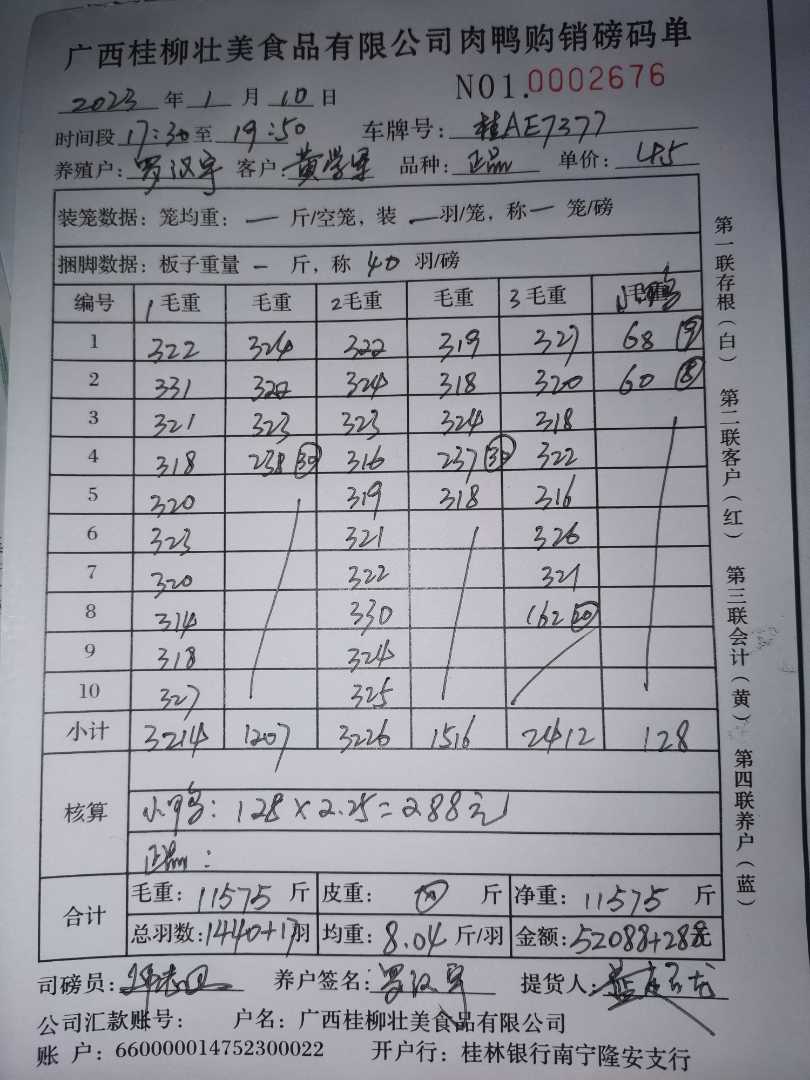 广西桂柳壮美食品有限公司肉鸭购销磅码单
2023 年 1 月 10 日 NO1.0002676
时间段 17:30 至 19:50 车牌号: 桂AE7377
养殖户: 罗汉宇 客户: 黄学军 品种: 正品 单价: 4.5
装笼数据: 笼均重: — 斤/空笼, 装 — 羽/笼, 称 — 笼/磅
捆脚数据: 板子重量 — 斤, 称 40 羽/磅
编号 1 毛重 毛重 2 毛重 毛重 3 毛重 小鸭
1 322 324 322 319 327 68 ⑨
2 331 322 324 318 320 60 ⑧
3 321 323 323 324 318
4 318 238 ㉚ 316 237 ㉚ 322
5 320 319 318 316
6 323 321 326
7 320 322 321
8 314 330 162 ⑳
9 318 324
10 327 325
小计 3214 1207 3226 1516 2412 128
核算
小鸭: 128×2.25=288元
正品:
合计
毛重: 11575 斤 皮重: 斤 净重: 11575 斤
总羽数: 1440+17羽 均重: 8.04 斤/羽 金额: 52088+288元
司磅员: 养户签名: 罗汉宇 提货人:
公司汇款账号: 户名: 广西桂柳壮美食品有限公司
账 户: 660000014752300022 开户行: 桂林银行南宁隆安支行
第一联存根(白) 第二联客户(红) 第三联会计(黄) 第四联养户(蓝)